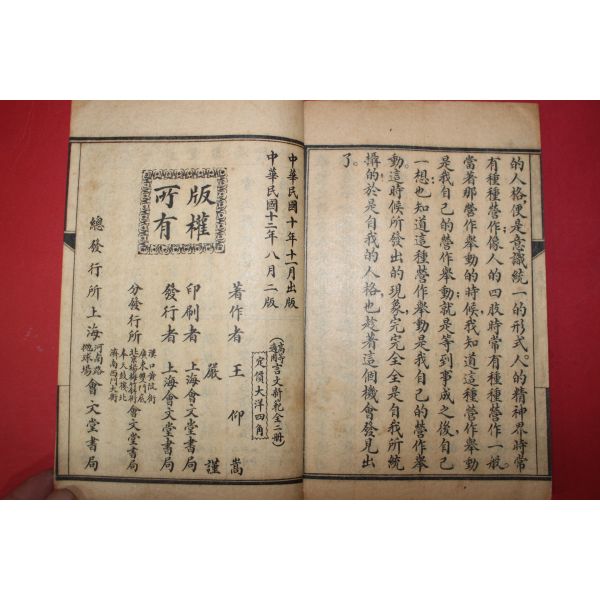 的人格、便是意識統一的形式。人的精神界時常
有種種營作、像人的四肢時常有種種營作一般。
當著那營作舉動的時候、我知道這種營作舉動
是我自己的營作舉動、就是等到事成之後、自己
一想、也知道這種營作舉動是我自己的營作舉
動。這時候所發出的現象、完完全全是自我所統
攝的、於是自我的人格、也趁著這個機會發見出
了。
中華民國十年十一月出版
中華民國十二年八月二版
版權
所有
言文新範全二冊
定價大洋四角
著作者 王仰嵩
嚴謹
印刷者 上海會文堂書局
發行者 上海會文堂書局
分發行所
漢口黃陂街
廣東雙門底
奉天鼓樓北
濟南西門大街
會文堂書局
總發行所 上海
河南路
拋球場
會文堂書局